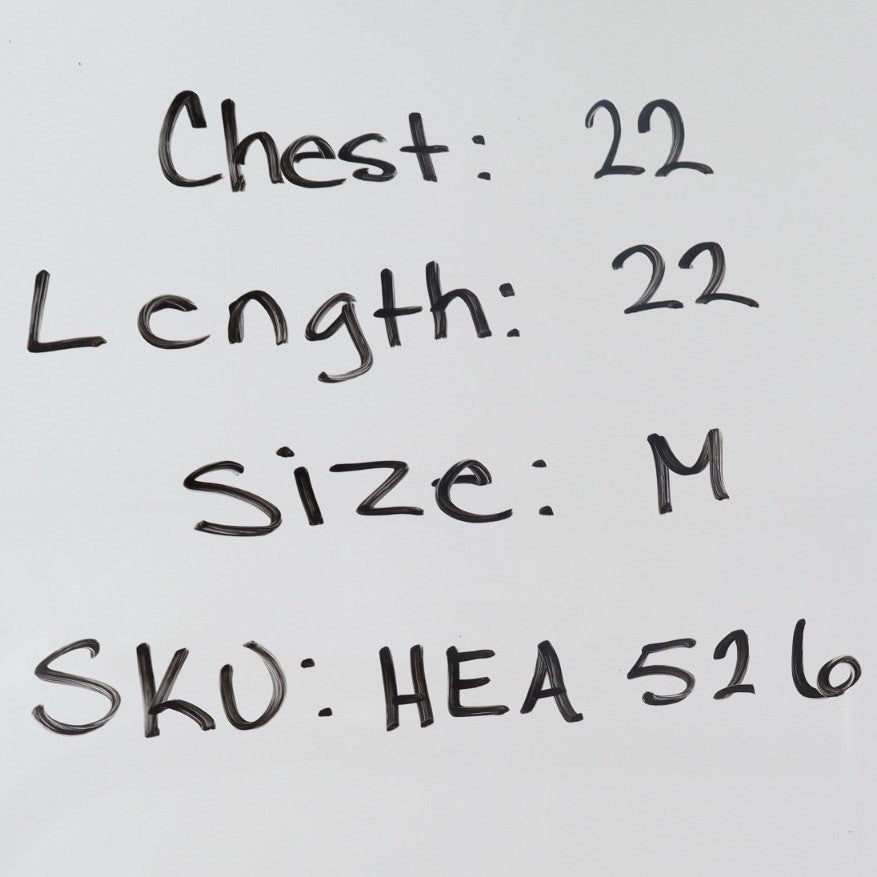 Chest: 22
Length: 22
Size: M
SKU: HEA 526